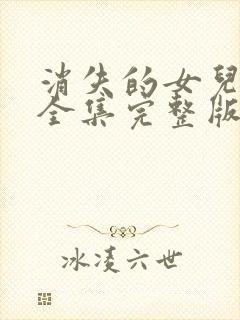 消失的女兒
全集完整版
冰凌六世